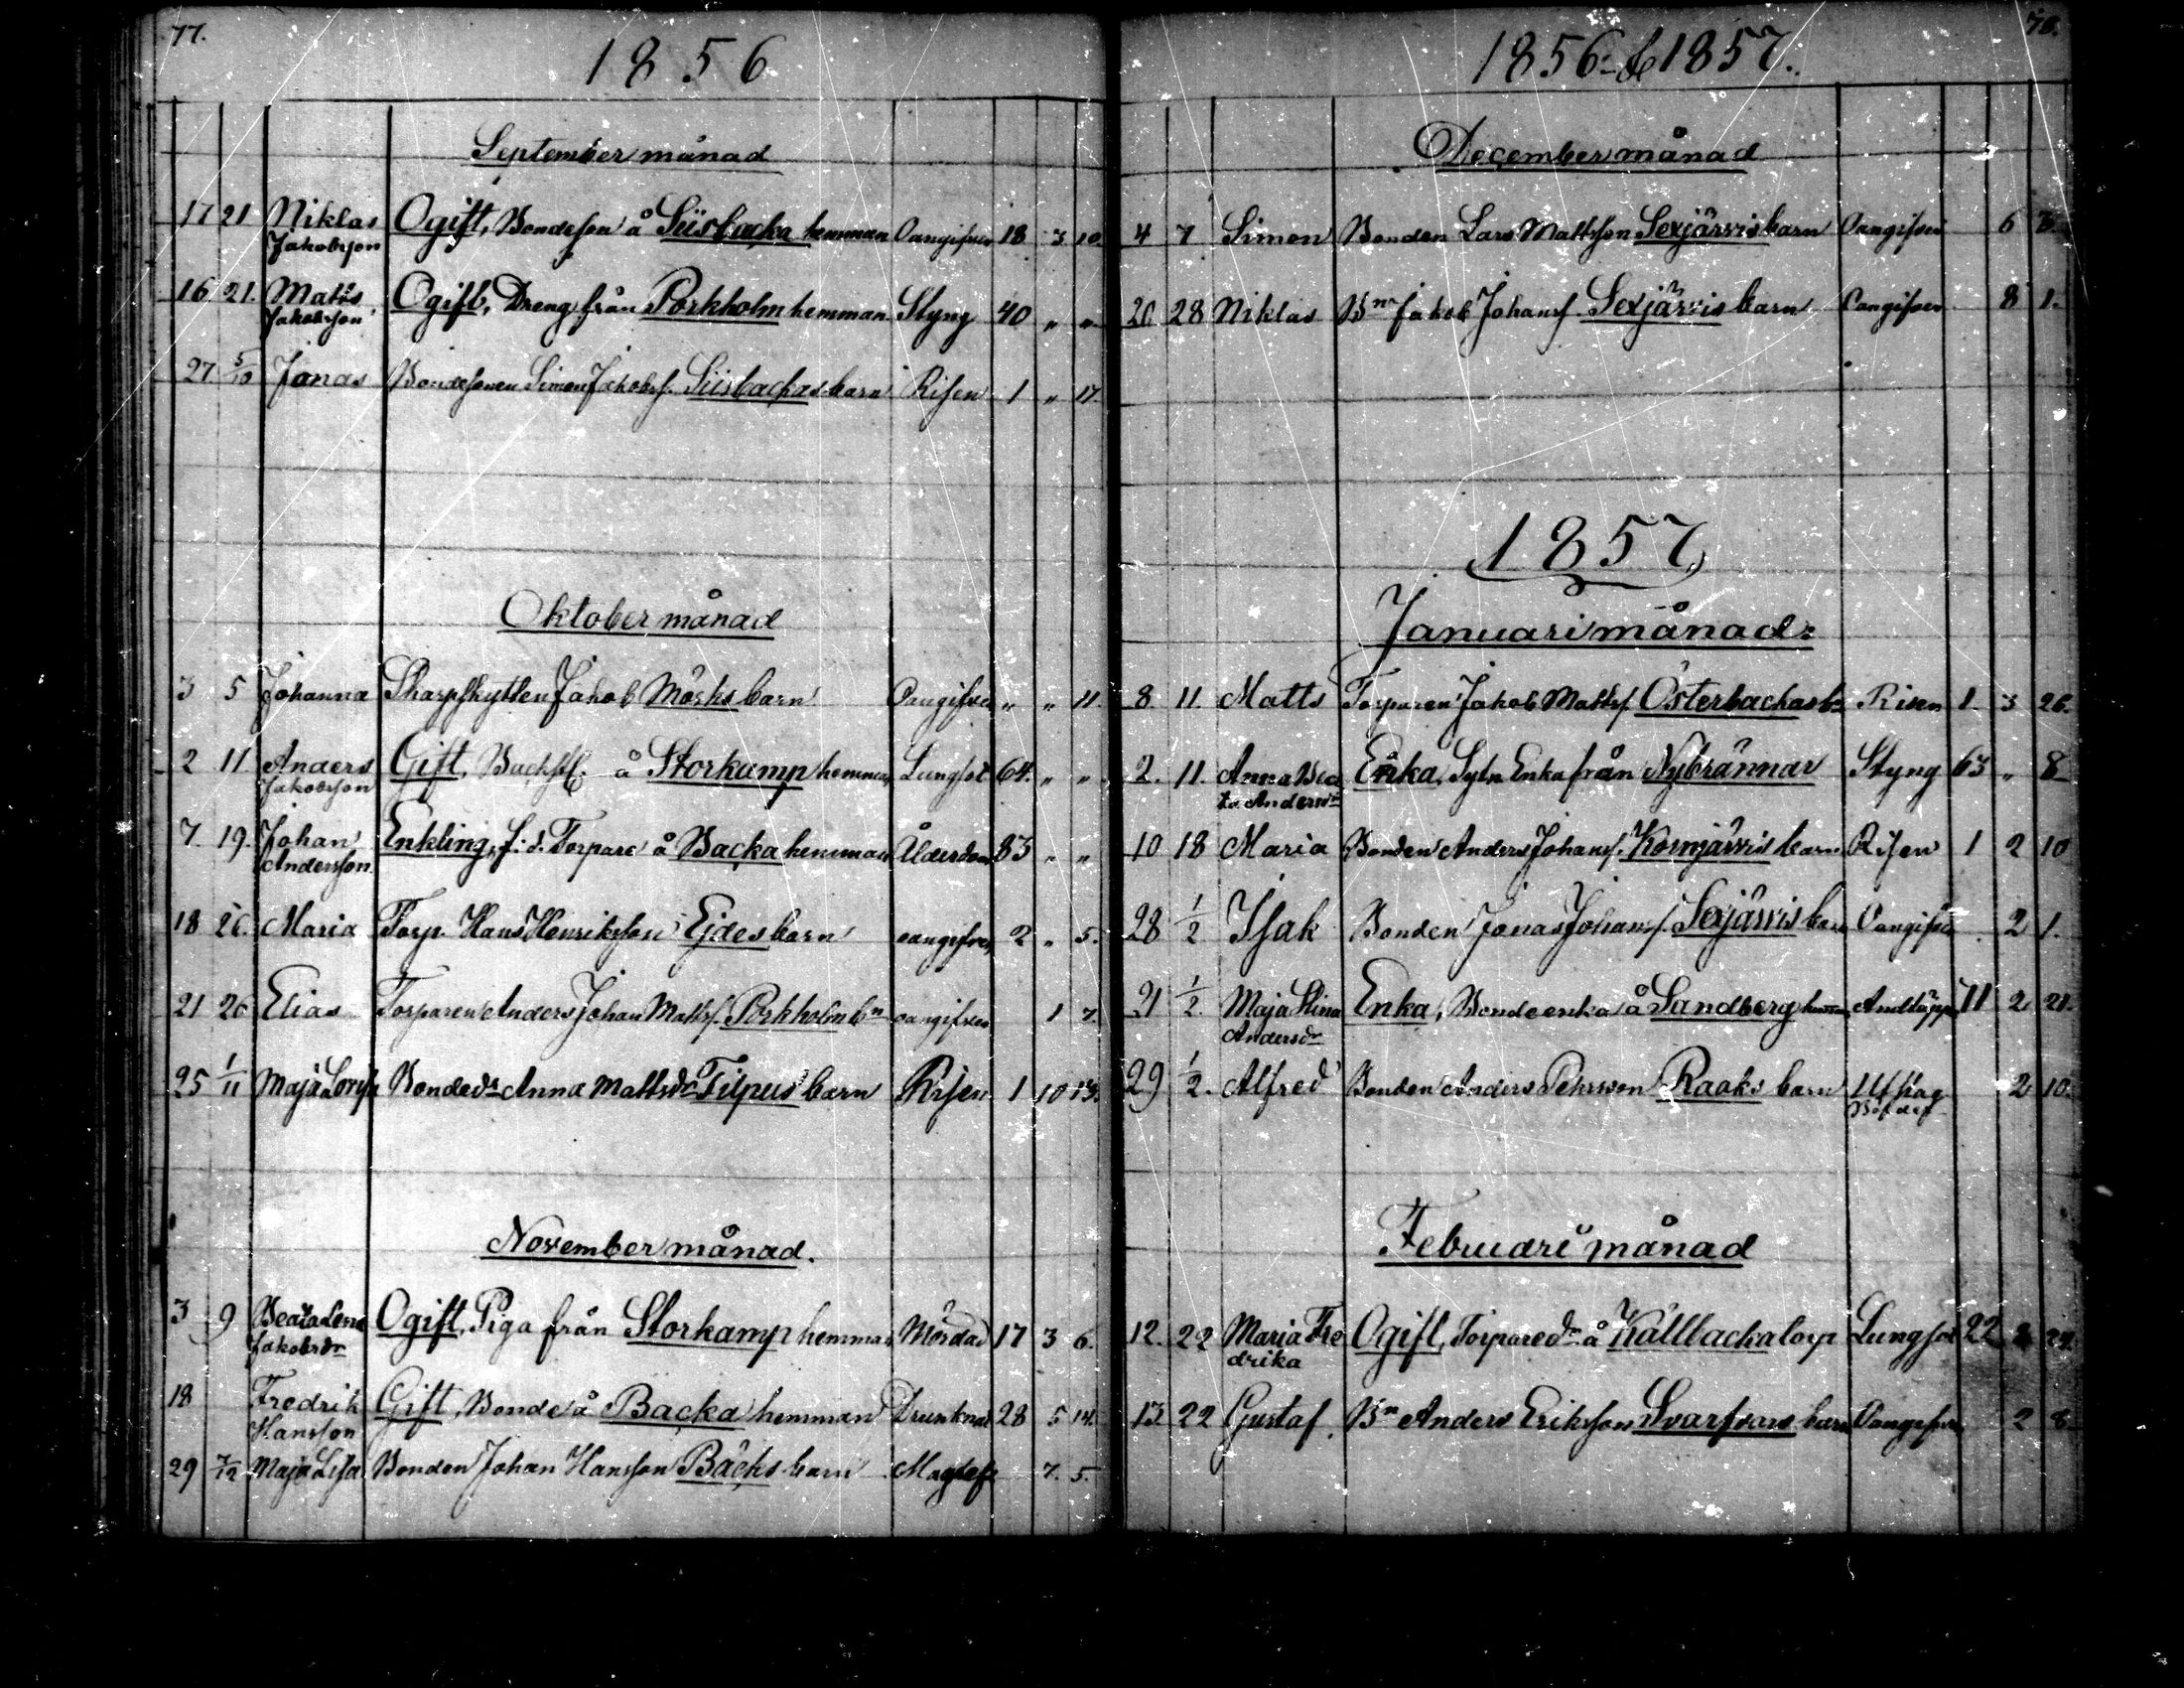 77.
1856
September månad
17 21 Niklas Ogift, Bondeson å Siisbacka hemman Oangifven 18 3 10
Jakobsson
16 21. Matts Ogift, Dreng från Porkholm hemman Styng 40 " "
Jakobsson
27 5/10 Jonas Bondesonen Simon Jakobss. Siisbackas barn Risen 1 " 17.
Oktober månad
3 5 Johanna Skarpskytten Jakob Mörks barn Oangifven " " 11.
2 11 Anders Gift, å Storkamp hemman Lungsot 64. " "
Jakobsson
7. 19. Johan Enkling, f.d. Torpare å Backa hemman Ålderdom 83 " "
Andersson
18 26. Maria Torp. Hans Henriksson Ejdes barn oangifven 2 " 5.
21 26 Elias Torparen Anders Johan Mattss. Porkholm bn oangifven 1 7.
25 1/11 Maja Lovisa Bondedr Anna Mattsdr Tilpus barn Risen 1 10 13.
November månad.
3 9 Beata Lena Ogift, Piga från Storkamp hemman Mördad 17 3 6.
Jakobsdr
18 Fredrik Gift, Bonde å Backa hemman Drunknad 28 5 14.
Hansson
29 7/12 Maja Lisa Bonden Johan Hansson Bäcks barn 7. 5.
78.
1856 & 1857.
December månad
4 7 Simon Bonden Lars Mattsson Sexjärvis barn Oangifven 6 3.
20 28 Niklas Bn Jakob Johanss. Sexjärvis barn Oangifven 8 1.
1857
Januari månad
8 11. Matts Torparen Jakob Mattss. Österbackas bn Risen 1. 3 26.
2. 11. Anna Bea Enka, Sytn. Enka från Nybrännar Styng 63 " 8
ta Andersdr
10 18 Maria Bonden Anders Johanss. Kornjärvis barn Risen 1 2 10
28 1/2 Isak Bonden Jonas Johanss. Sexjärvis barn Oangifven 2 1.
21 1/2. Maja Stina Enka, Bondeenka å Sandberg hemman Andtäppa 71 2 21.
Andersdr
29 1/2. Alfred Bonden Anders Pehrsson Raaks barn Utslag 2 10.
Februari månad
12. 22 Maria Fre Ogift, Torparedr å Källbacka torp Lungsot 22 2 24.
drika
13 22 Gustaf. Bn Anders Eriksson Svarfvars barn Oangifven 2 8